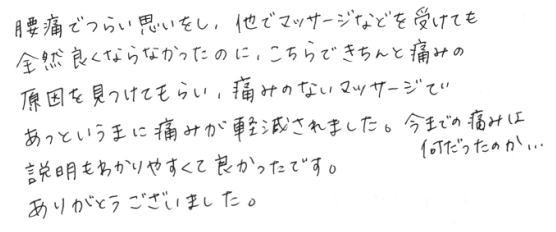 腰痛でつらい思いをし、他でマッサージなどを受けても
全然良くならなかったのに、こちらできちんと痛みの
原因を見つけてもらい、痛みのないマッサージで
あっというまに痛みが軽減されました。今までの痛みは
何だったのか…
説明もわかりやすくて良かったです。
ありがとうございました。